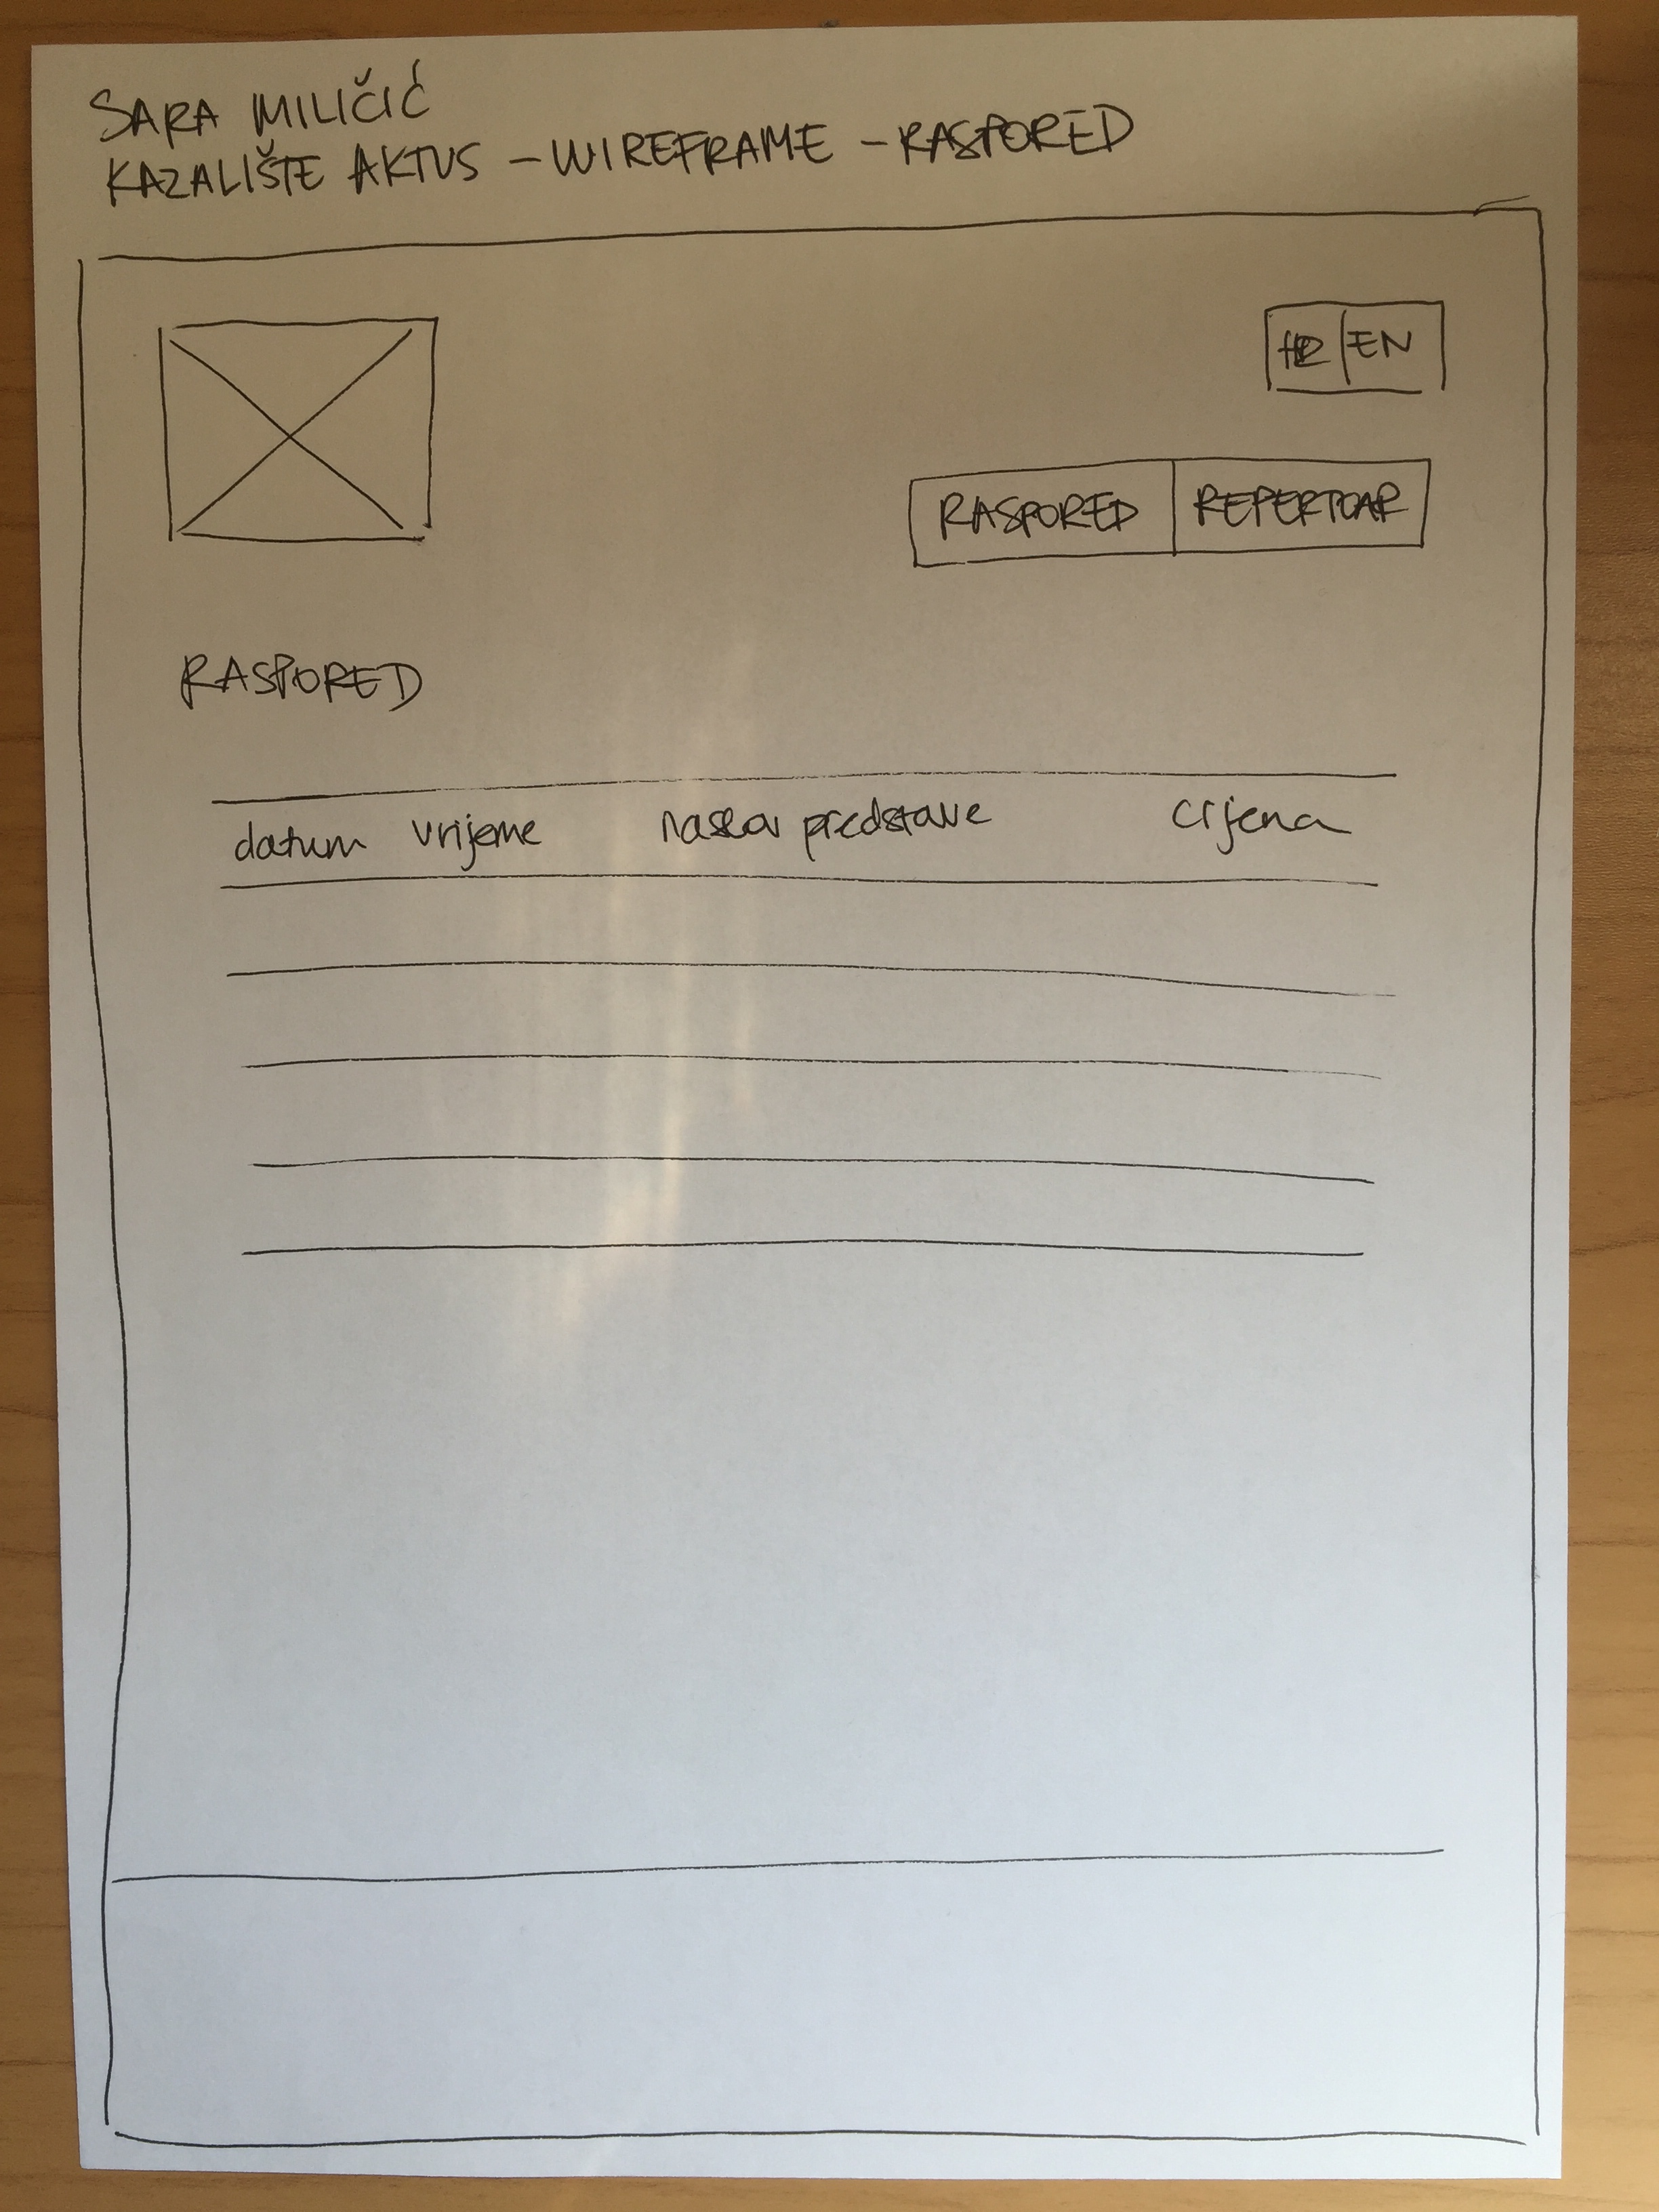 SARA MILIČIĆ
KAZALIŠTE AKTUS – WIREFRAME – RASPORED
HR | EN
RASPORED | REPERTOAR
RASPORED
datum vrijeme naslov predstave cijena